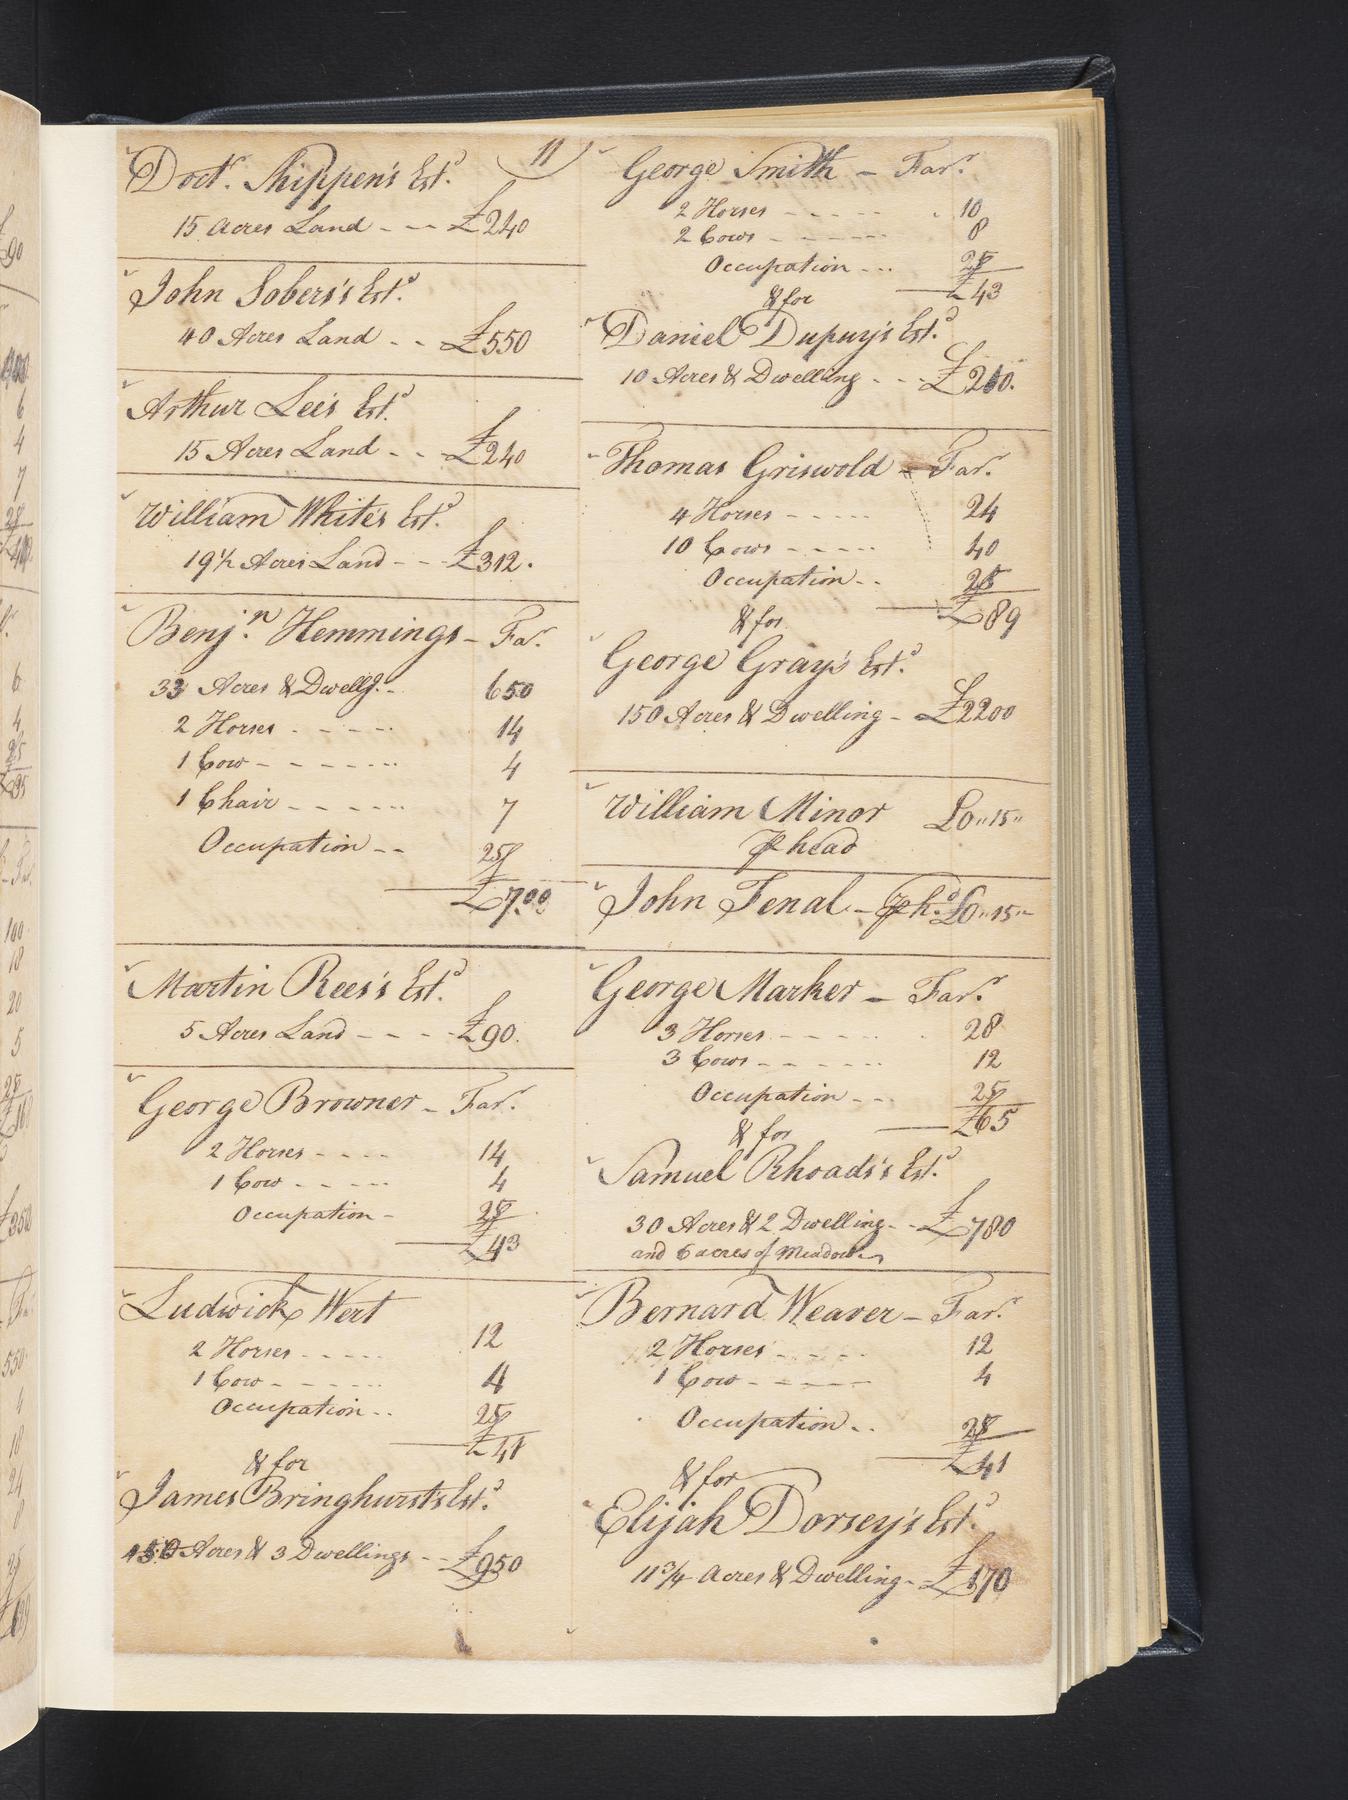 11
Doctr. Shippen's Estd.
15 Acres Land - - - £240
John Sobers's Estd.
40 Acres Land - - £550
Arthur Lee's Estd.
15 Acres Land - - £240
William White's Estd.
19 1/2 Acres Land - - £312.
Benjn. Hemmings - Far.
33 Acres & Dwellg. - 650
2 Horses - - - - 14
1 Cow - - - - - 4
1 Chair - - - - - 7
Occupation - - 25
£700
Martin Rees's Estd.
5 Acres Land - - - - £90.
George Browner - Farr.
2 Horses - - - - 14
1 Cow - - - - 4
Occupation - 25
£43
Ludwick Wert
2 Horses - - - - - 12
1 Cow - - - - - 4
Occupation - - 25
£41
& for
James Bringhurst's Estd.
Acres & 3 Dwellings - - £950
George Smith - Farr.
2 Horses - - - - - 10
2 Cows - - - - - 8
Occupation - - - 25
£43
& for
Daniel Dupuy's Estd.
10 Acres & Dwelling - - - £210.
Thomas Griswold - Farr.
4 Horses - - - - - 24
10 Cows - - - - - 40
Occupation - - 25
£89
& for
George Gray's Estd.
150 Acres & Dwelling - £2200
William Minor £0,,15,,
P head
John Fenal - P hd. £0,,15,,
George Marker - Farr.
3 Horses - - - - - 28
3 Cows - - - - - 12
Occupation - - - 25
£65
& for
Samuel Rhoads's Estd.
30 Acres & 2 Dwelling - - £780
and 6 acres of Meadow
Bernard Weaver - Farr.
2 Horses - - - - 12
1 Cow - - - - - 4
Occupation - - 25
£41
& for
Elijah Dorsey's Estd.
11 3/4 Acres & Dwelling - - £170